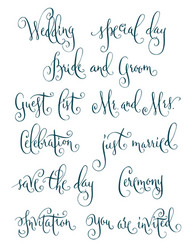 Wedding special day
Bride and Groom
Guest list Mr and Mrs
Celebration just married
save the day Ceremony
Invitation You are invited